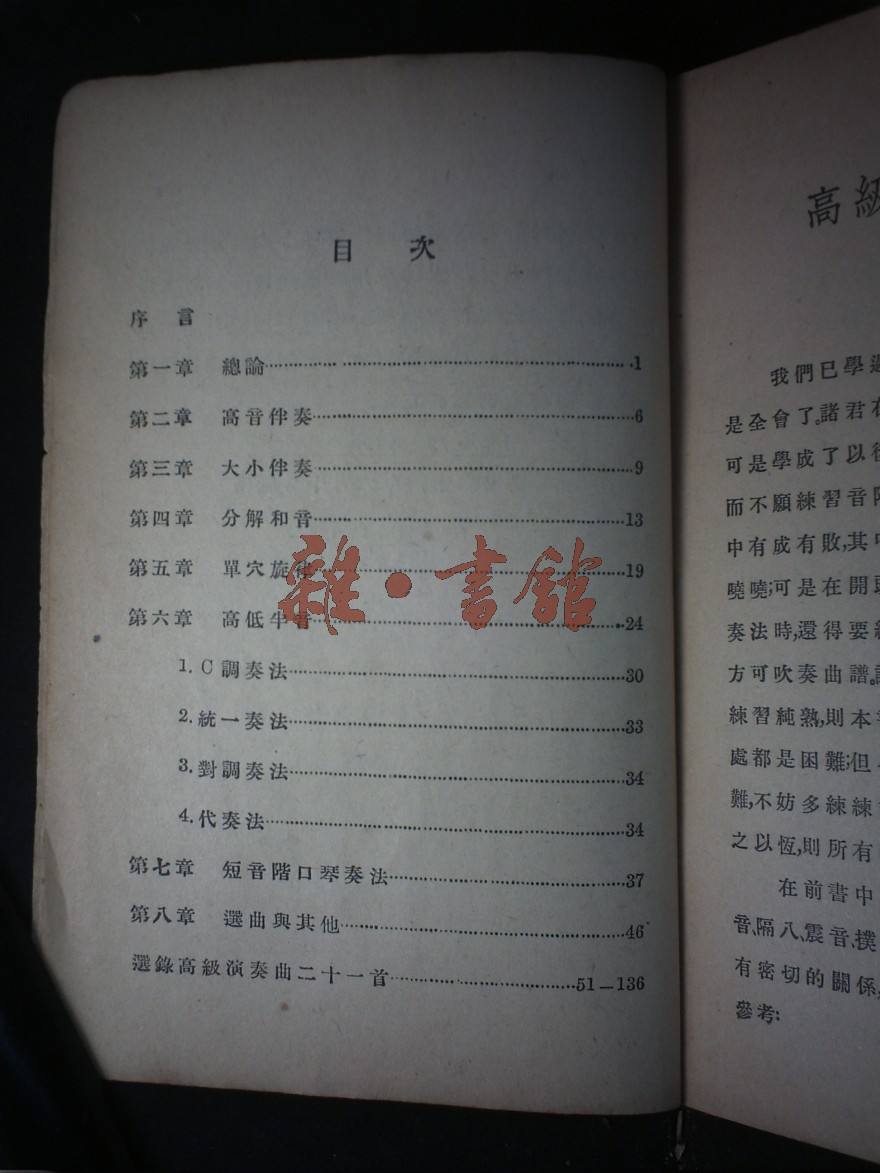 目 次
序 言
第一章 總論 1
第二章 高音伴奏 6
第三章 大小伴奏 9
第四章 分解和音 13
第五章 單穴旋律 19
第六章 高低半音 24
1. C調奏法 30
2. 統一奏法 33
3. 對調奏法 34
4. 代奏法 34
第七章 短音階口琴奏法 37
第八章 選曲與其他 46
選錄高級演奏曲二十一首 51—136
雜·書館
高級
我們已學過
是全會了。諸君在
可是學成了以後
而不願練習音階
中有成有敗,其中
嘵嘵;可是在開頭
奏法時,還得要練
方可吹奏曲譜。
練習純熟,則本書
處都是困難;但
難,不妨多練練
之以恆,則所有
在前書中
音、隔八、震音、撲
有密切的關係,
參考: